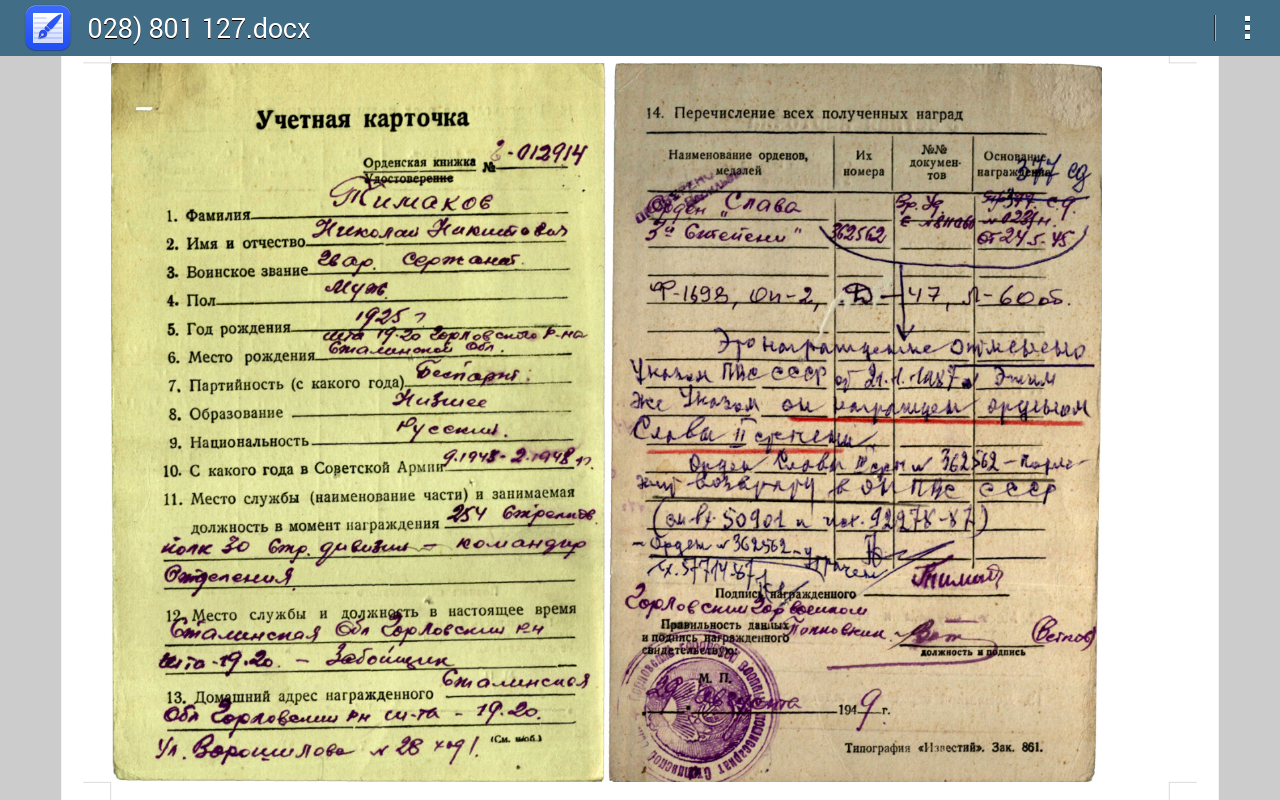 028) 801 127.docx
Учетная карточка
Орденская книжка № З-012914
Удостоверение
Тимаков
1. Фамилия
Николай Никитович
2. Имя и отчество
Гвар. Сержант.
3. Воинское звание
Муж.
4. Пол
1925 г
5. Год рождения
шта 19-20 Горловского Р-на
6. Место рождения Сталинской Обл.
7. Партийность (с какого года) Беспарт.
8. Образование Низшее
9. Национальность Русский.
10. С какого года в Советской Армии
11. Место службы (наименование части) и занимаемая
должность в момент награждения 254 Стрелков.
полк 30 Стр. дивизии – командир
Отделения
12. Место службы и должность в настоящее время
Сталинская Обл Горловский рн
шта-19-20. – Забойщик
13. Домашний адрес награжденного Сталинская
Обл Горловский рн ш-та - 19-20.
Ул. Ворошилова № 28
(См. на об.)
14. Перечисление всех полученных наград
Наименование орденов, медалей
Их номера
№№ документов
Основание награждения
377 сд
Орден "Слава
3й Степени"
362562
Вр. Уд
от 24.5.45
Ф-1693, Оп-2, Д-47, Л-60об.
Это награждение отменено
Указом ПВС СССР от 21.1.1987 г. Этим
же Указом он награжден орденом
Славы II степени
Орден Славы III степ № 362562 – подле-
жит возврату в ОН ПВС СССР
(см вх. 50901 и исх. 92978-87)
– Орден № 362562 – утрачен
Подпись награжденного
Горловский Горвоенком
Правильность данных
и подпись награжденного
свидетельствую:
должность и подпись
М. П.
29 августа 1949 г.
Типография «Известий». Зак. 861.